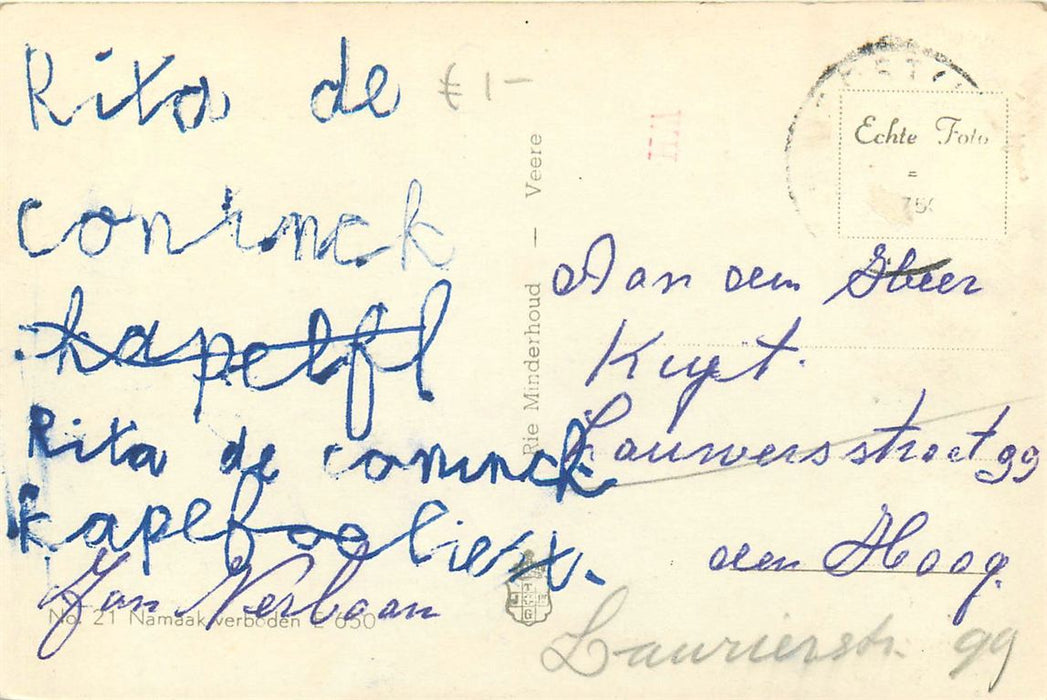 Rita de
€ 1-
coninck
kapelfl
Rita de coninck
Kapelfooliest.
Jan Verbaan
No. 21 Namaak verboden E 650
Rie Minderhoud — Veere
Echte Foto
=
Aan den Heer
Kuyt.
Lauwersstraat 99
den Haag.
Laurierstr. 99